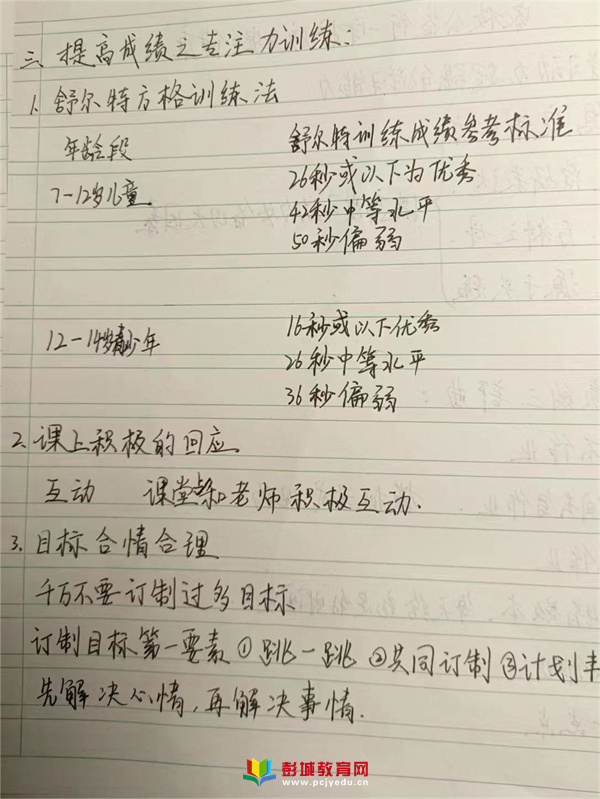 三、提高成绩之专注力训练:
1、舒尔特方格训练法
年龄段 舒尔特训练成绩参考标准
7-12岁儿童 26秒或以下为优秀
42秒中等水平
50秒偏弱
12-14岁青少年 16秒或以下优秀
26秒中等水平
36秒偏弱
2、课上积极的回应
互动 课堂和老师积极互动.
3、目标合情合理
千万不要订制过多目标
订制目标第一要素①跳一跳②共同订制③计划丰
先解决心情,再解决事情.
彭城教育网
www.pcjyedu.cn